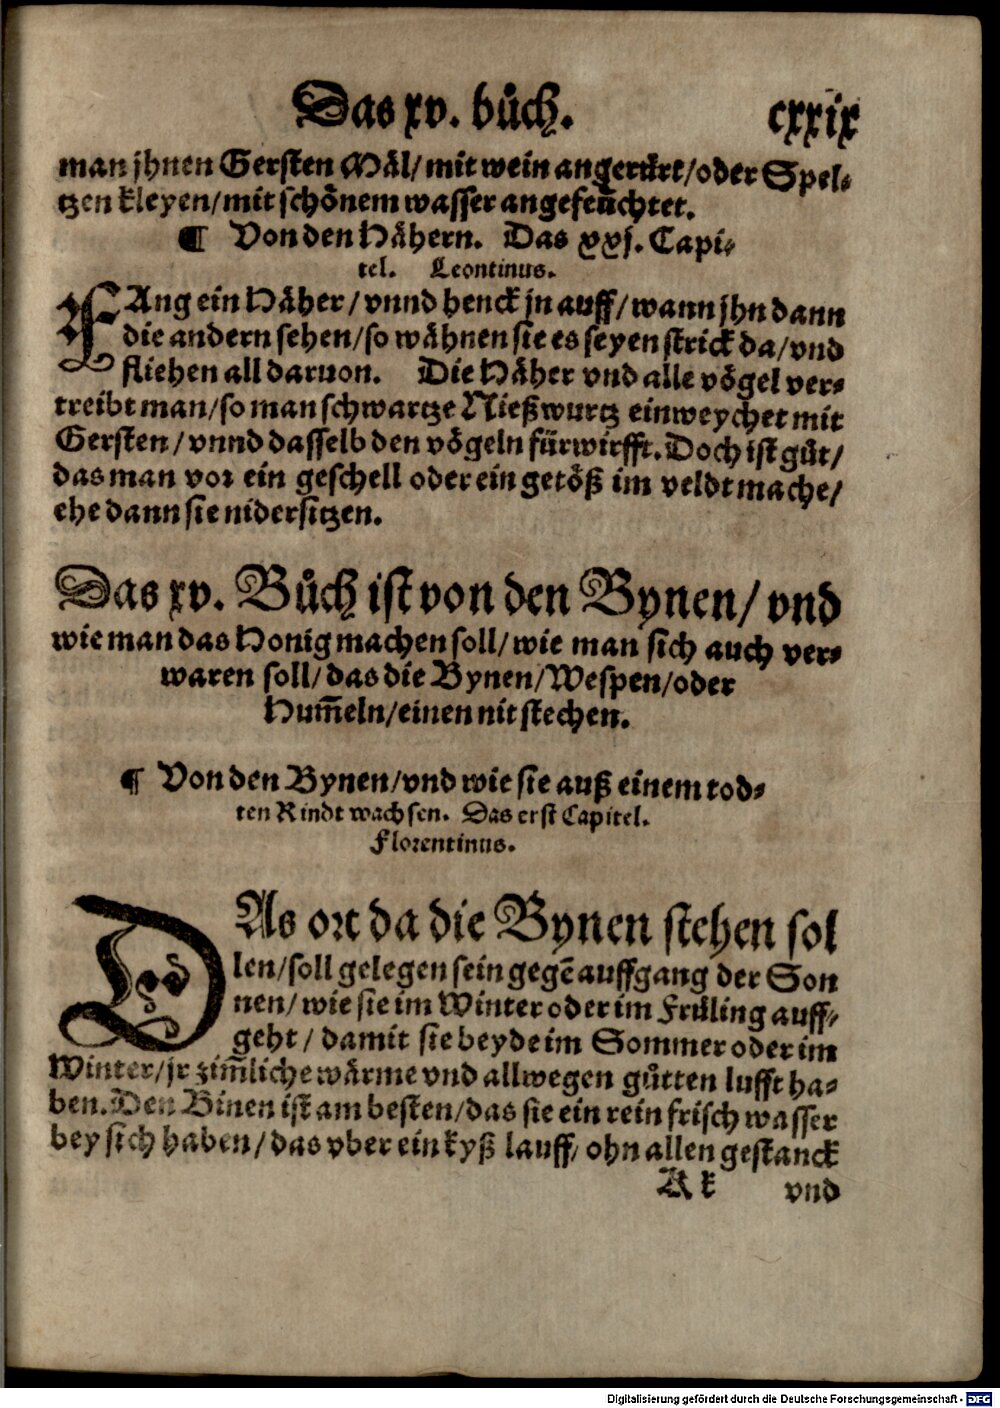 Das xv. bůch.
cxxix
man jhnen Gersten Mäl/ mit wein angerürt/ oder Spel⸗
tzen kleyen/ mit schönem wasser angefeüchtet.
¶ Von den Hähern. Das xxj. Capi⸗
tel. Leontinus.
FAng ein Häher/ vnnd henck jn auff/ wann jhn dann
die andern sehen/ so wähnen sie es seyen strick da/ vnd
fliehen all daruon. Die Häher vnd alle vögel ver⸗
treibt man/ so man schwartze Nießwurtz einweychet mit
Gersten/ vnnd dasselb den vögeln fürwirfft. Doch ist gůt/
das man vor ein geschell oder ein getöß im veldt mache/
ehe dann sie nidersitzen.
Das xv. Bůch ist von den Bynen/ vnd
wie man das Honig machen soll/ wie man sich auch ver⸗
waren soll/ das die Bynen/ Wespen/ oder
Hum̃eln/ einen nit stechen.
¶ Von den Bynen/ vnd wie sie auß einem tod⸗
ten Rindt wachsen. Das erst Capitel.
Florentinus.
DAs ort da die Bynen stehen sol
len/ soll gelegen sein gegẽ auffgang der Son
nen/ wie sie im Winter oder im Früling auff⸗
geht/ damit sie beyde im Sommer oder im
Winter/ jr zim̃liche wärme vnd allwegen gůtten lufft ha⸗
ben. Den Binen ist am besten/ das sie ein rein frisch wasser
bey sich haben/ das vber ein kyß lauff/ ohn allen gestanck
K k vnd
Digitalisierung gefördert durch die Deutsche Forschungsgemeinschaft - DFG